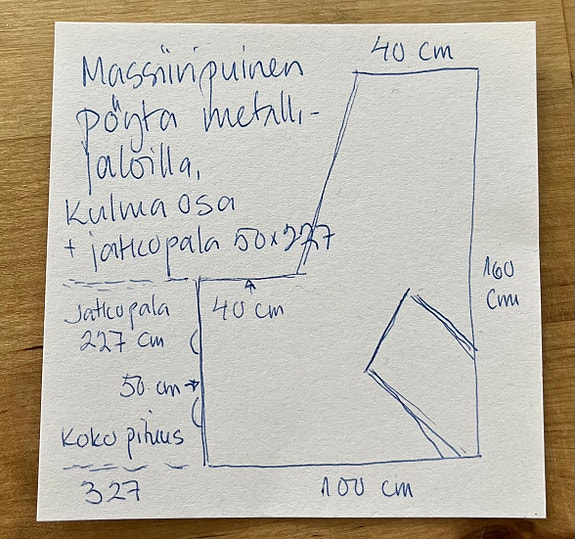 40 cm
Massiivipuinen
pöytä metalli-
jaloilla,
Kulma osa
+ jatkopala 50x227
160
cm
Jatkopala
227 cm
40 cm
50 cm
Koko pituus
327
100 cm